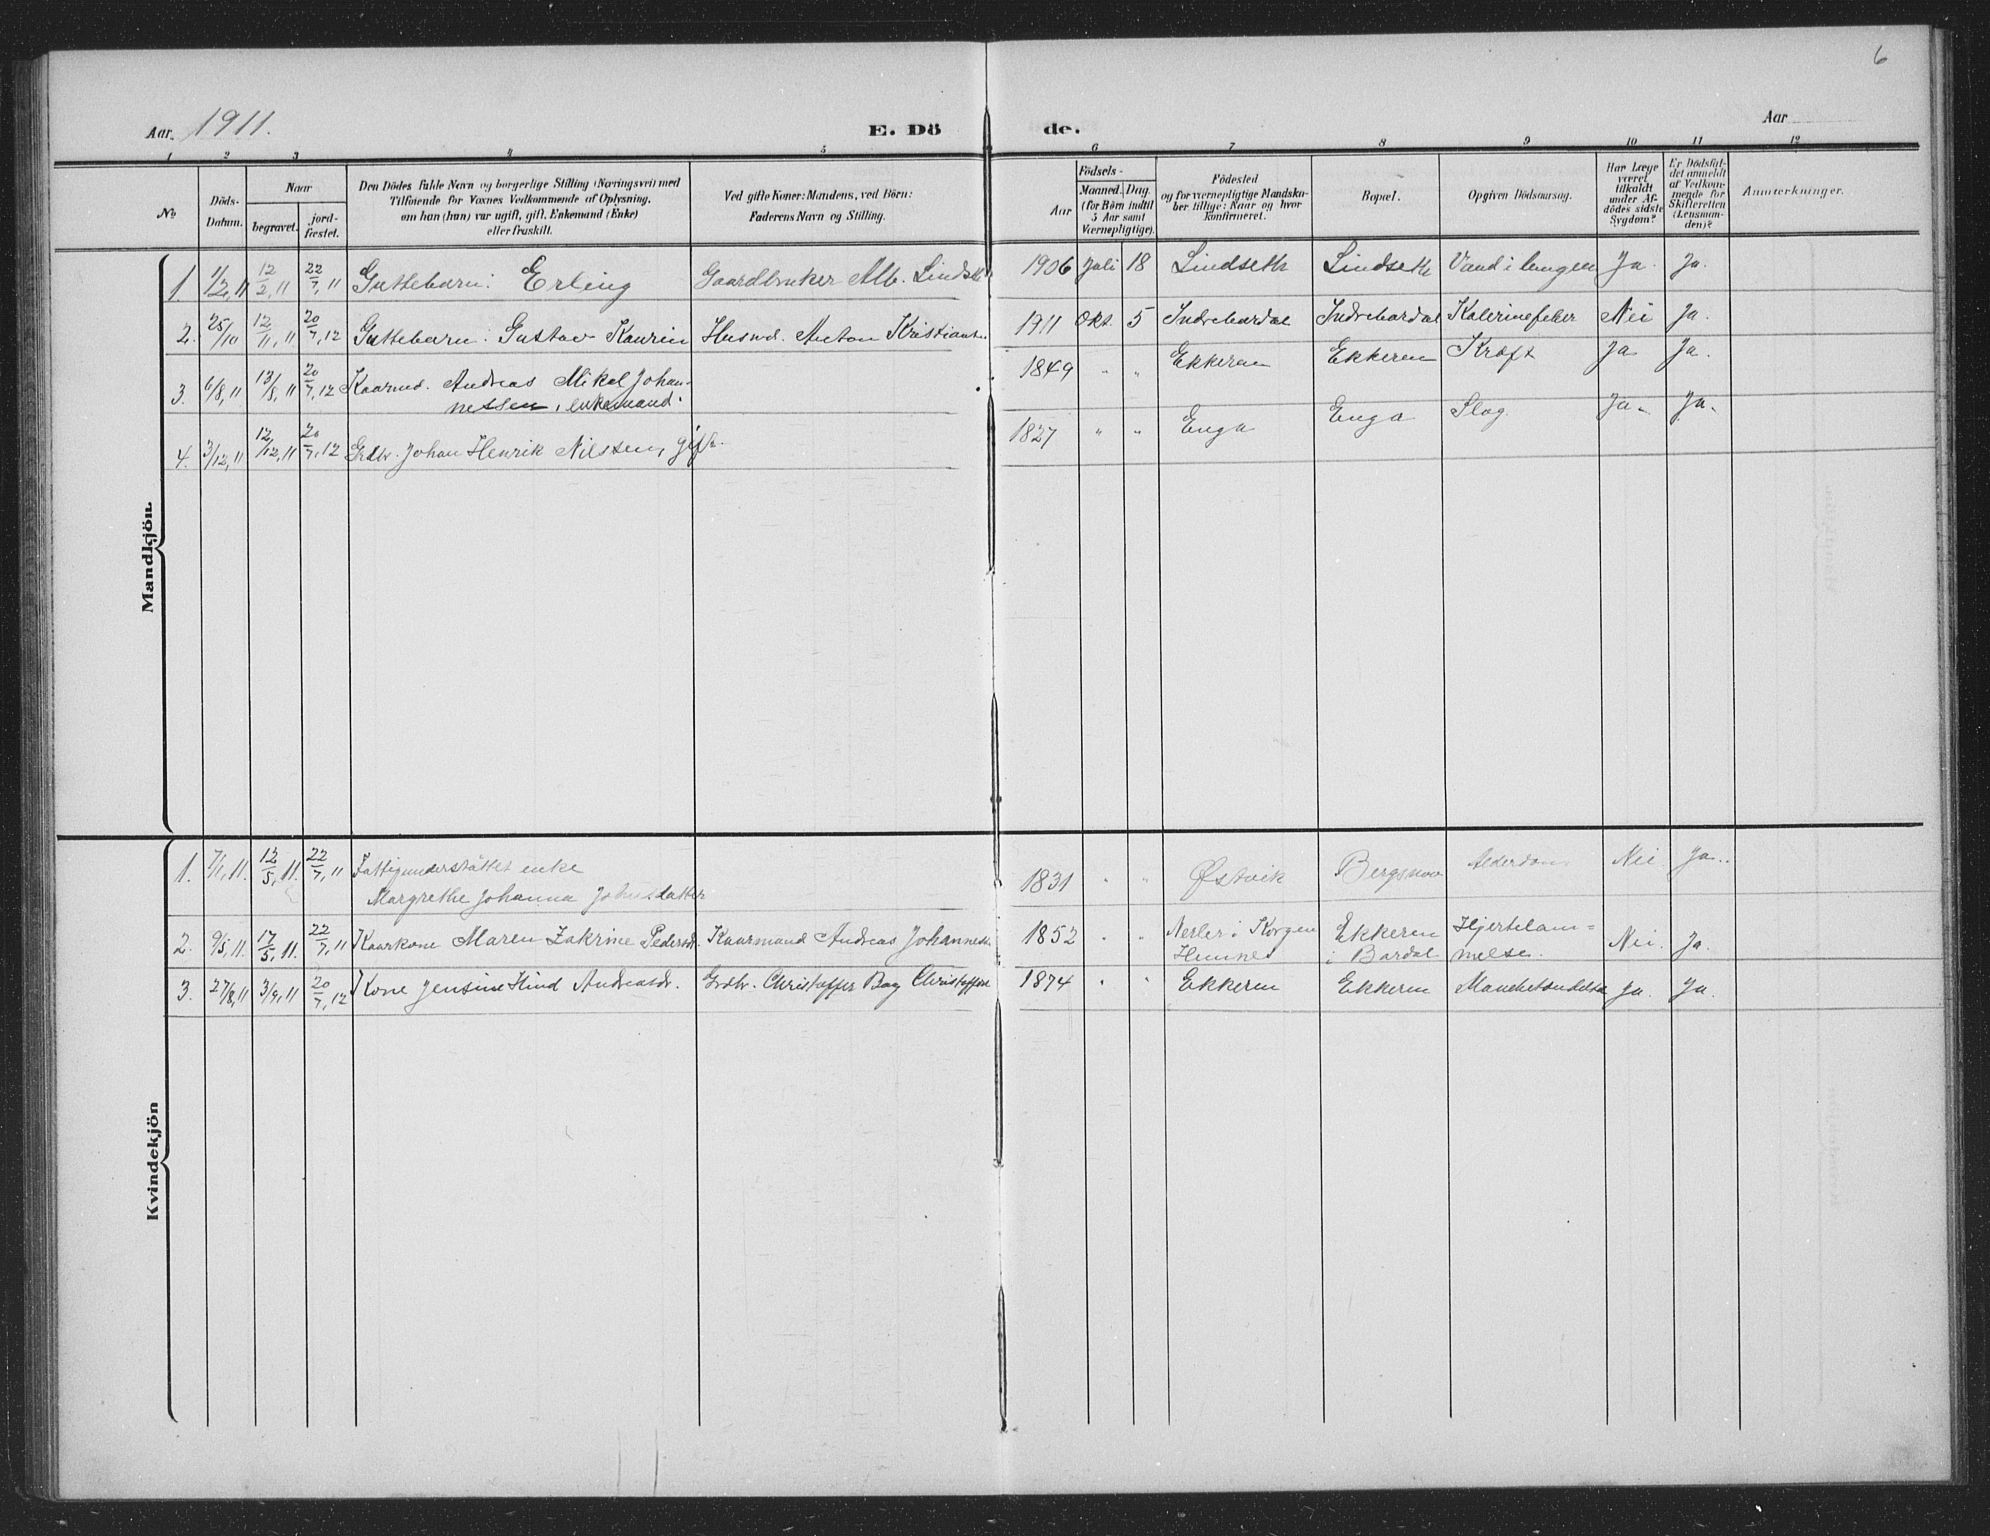 6
Aar 1911. E. Dö de. Aar
1 2 3 4 5 6 7 8 9 10 11 12
No
Döds-
Datum.
Naar
begravet.
jord-
fæstet.
Den Dödes fulde Navn og borgerlige Stilling (Næringsvei) med
Tilföiende for Voxnes Vedkommende af Oplysning,
om han (hun) var ugift, gift, Enkemand (Enke)
eller fraskilt.
Ved gifte Koner: Mandens, ved Börn:
Faderens Navn og Stilling.
Födsels-
Aar
Maaned. Dag.
(for Börn indtil
5 Aar samt
Værnepligtige).
Födested
og for værnepligtige Mandska-
ber tillige: Naar og hvor
konfirmeret.
Bopæl.
Opgiven Dödsaarsag.
Har Læge
været
tilkaldt
under Af-
dödes sidste
Sygdom?
Er Dödsfal-
det anmeldt
af Vedkom-
mende for
Skifteretten
(Lensman-
den)?
Anmærkninger.
Mandkjön.
1 1/2, 11 12/2, 11 22/7, 11 Guttebarn: Erling Gaardbruker Alb. Lindseth 1906 Juli 18 Lindseth Lindseth Vand i lungen Ja. Ja.
2. 25/10 12/11, 11 20/7, 12 Guttebarn: Gustav Kaurin Husmd. Anton Kristiansen 1911 Okt. 5 Indrebardal Indrebardal Nei Ja.
3. 6/8, 11 13/8, 11 20/7, 12 Kaarmd. Andreas Mikal Johan- 1849 " " Ekkeren Ekkeren Kræft Ja Ja.
nessen, enkemand.
4. 3/12, 11 12/12, 11 20/7, 12 Grdbr. Johan Henrik Nilssen, gift. 1827 " " Enga Enga Slag. Ja. Ja.
Kvindekjön
1. 7/1, 11. 12/5, 11. 22/7, 11 Fattigunderstøttet enke 1831 " " Østvik Alderdom Nei Ja.
Margrethe Johanna Johnsdatter
2. 9/5, 11. 17/5, 11. 22/7, 11 Kaarkone Maren Zakrine Pedersdr. Kaarmand Andreas Johannessen 1852 " " Nerlei i Korgen Ekkeren Hjertelam= Nei. Ja.
Hemnes i Bardal melse.
3. 27/8, 11 3/9, 11 20/7, 12 Kone Jensine Hind Andreasdr. Grdbr. Christoffer Bay Christoffersen 1874 " " Ekkeren Ekkeren Ja. Ja.